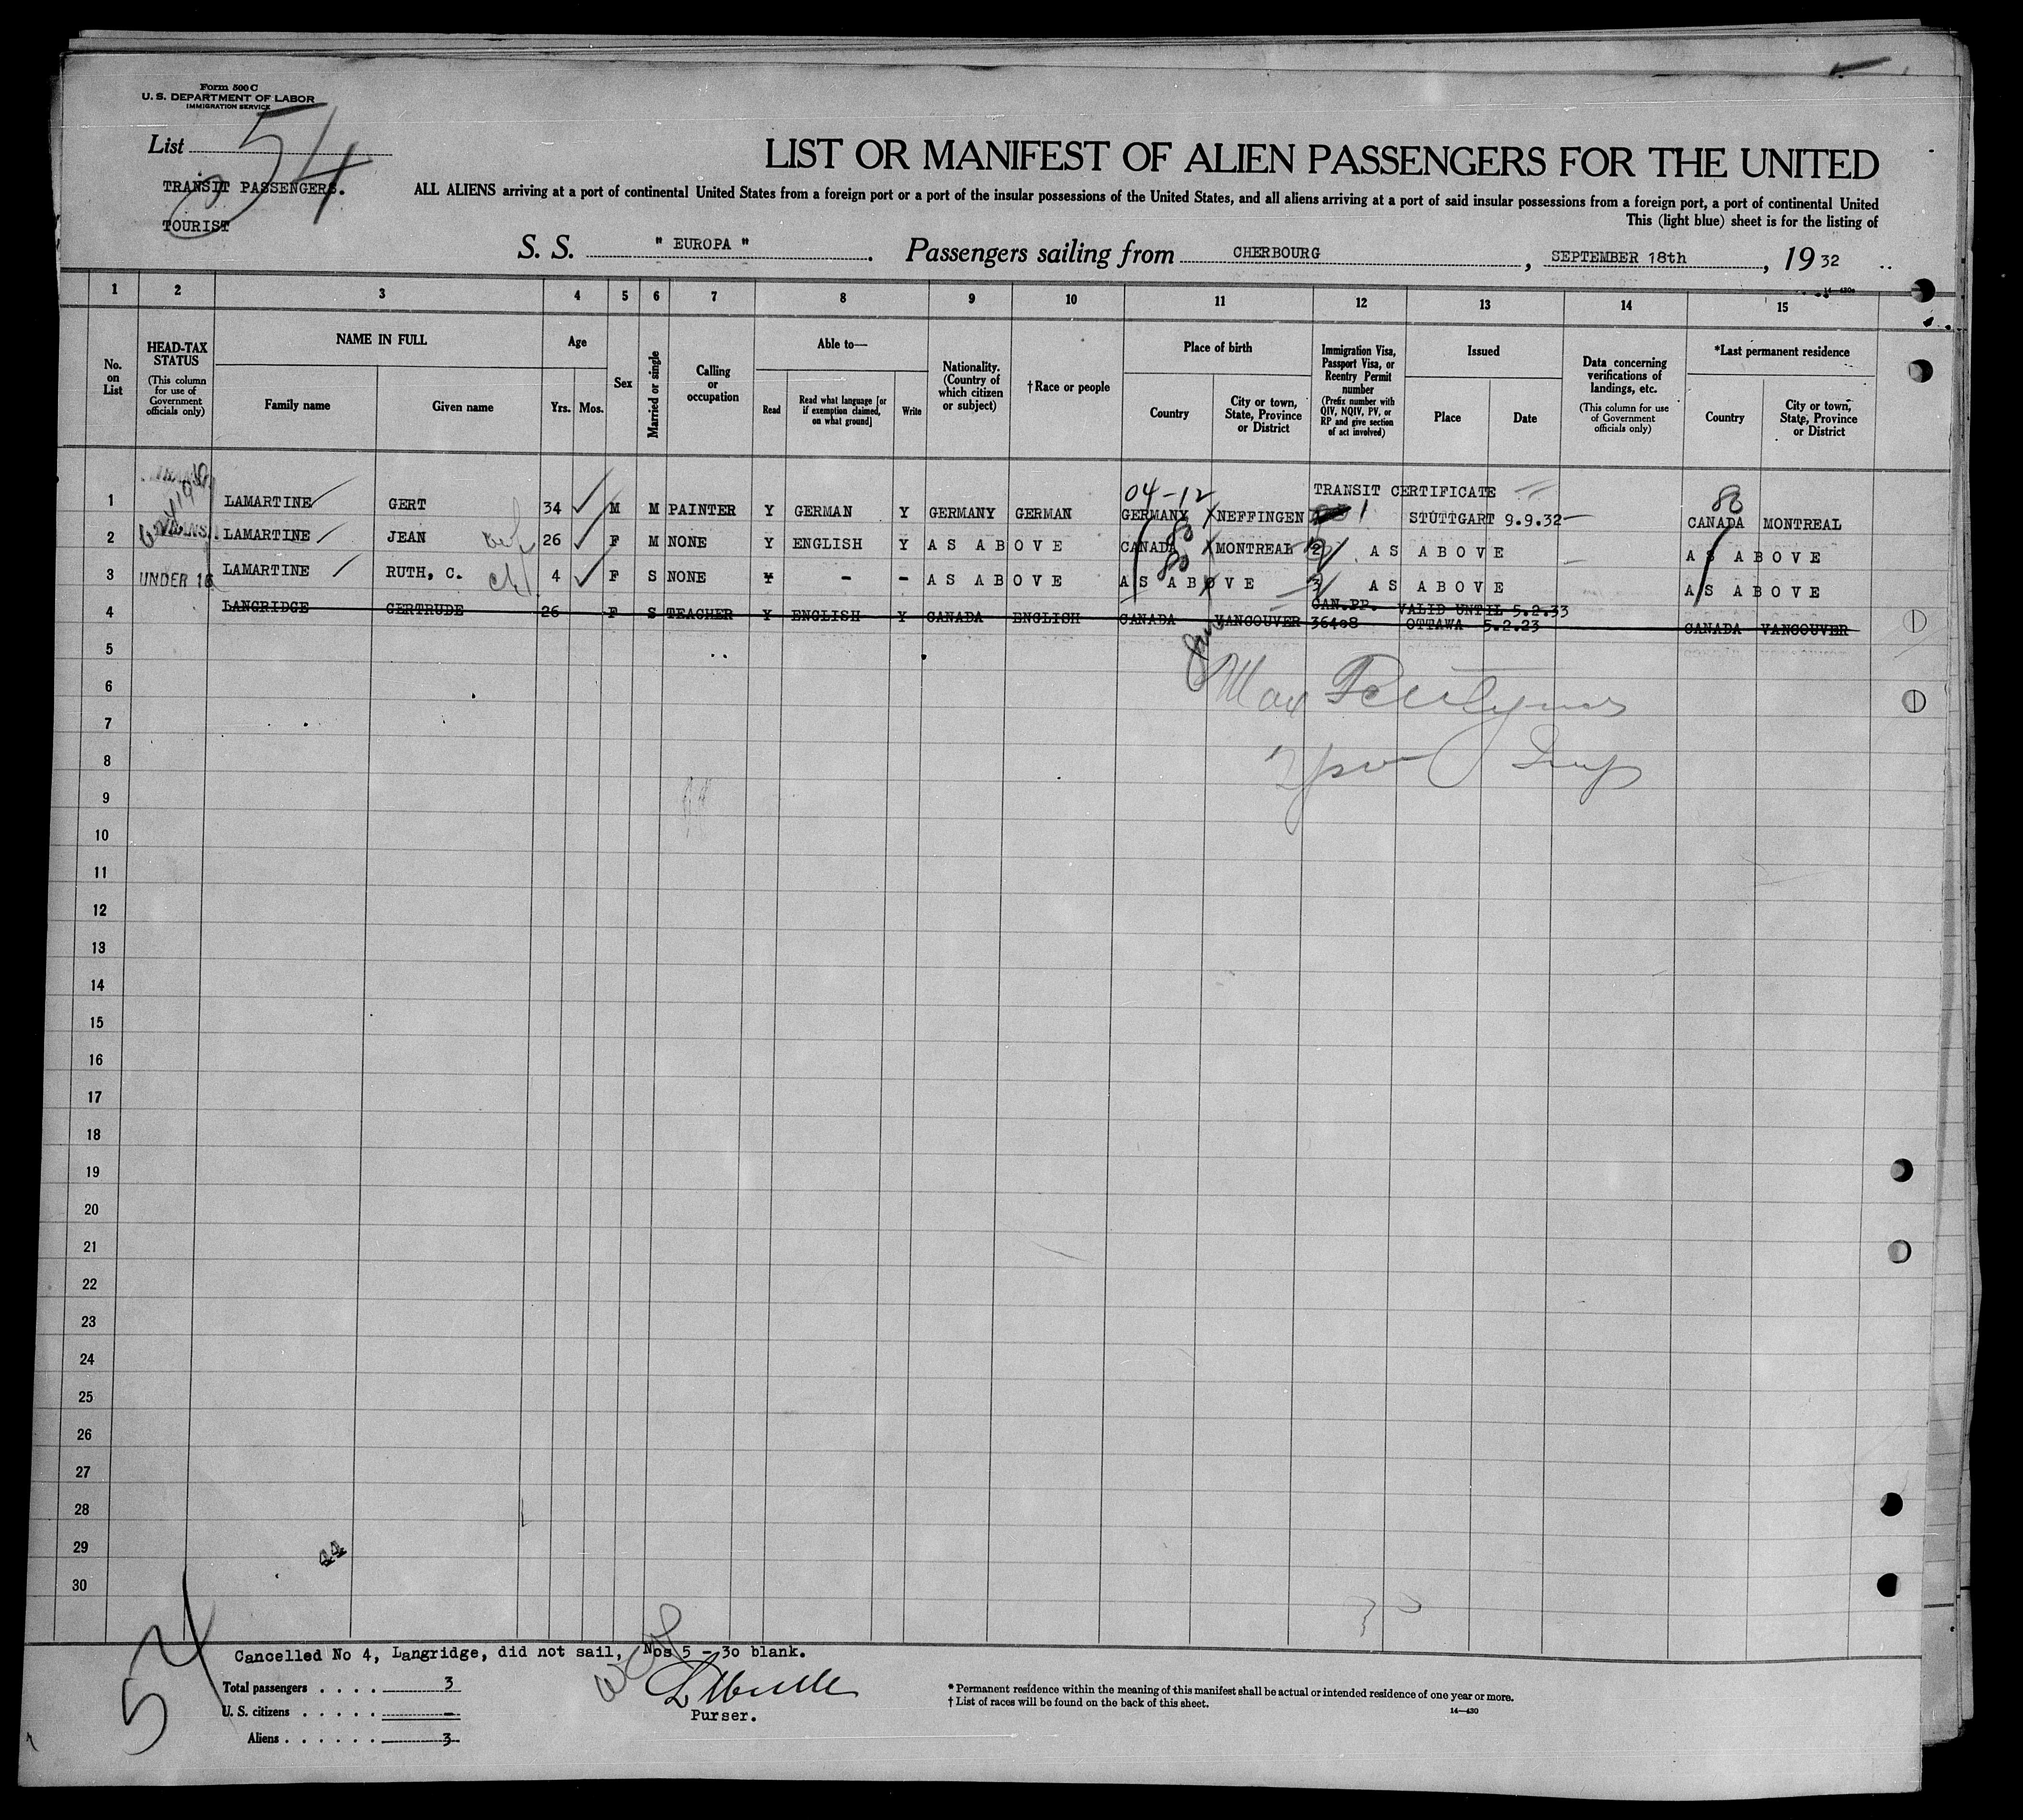 Form 500 C
U. S. DEPARTMENT OF LABOR
IMMIGRATION SERVICE
List 54
TRANSIT PASSENGERS.
TOURIST
LIST OR MANIFEST OF ALIEN PASSENGERS FOR THE UNITED
ALL ALIENS arriving at a port of continental United States from a foreign port or a port of the insular possessions of the United States, and all aliens arriving at a port of said insular possessions from a foreign port, a port of continental United
This (light blue) sheet is for the listing of
S. S. " EUROPA ". Passengers sailing from CHERBOURG, SEPTEMBER 18th, 19 32
14-430a
1 2 3 4 5 6 7 8 9 10 11 12 13 14 15
No. on List
HEAD-TAX STATUS
(This column for use of Government officials only)
NAME IN FULL
Family name
Given name
Age
Yrs. Mos.
Sex
Married or single
Calling or occupation
Able to—
Read
Read what language [or if exemption claimed, on what ground]
Write
Nationality. (Country of which citizen or subject)
†Race or people
Place of birth
Country
City or town, State, Province or District
Immigration Visa, Passport Visa, or Reentry Permit number
(Prefix number with QIV, NQIV, PV, or RP and give section of act involved)
Issued
Place
Date
Data concerning verifications of landings, etc.
(This column for use of Government officials only)
*Last permanent residence
Country
City or town, State, Province or District
04-12 TRANSIT CERTIFICATE 80
1 LAMARTINE GERT 34 M M PAINTER Y GERMAN Y GERMANY GERMAN GERMANY NEFFINGEN 1 STUTTGART 9.9.32 CANADA MONTREAL
2 LAMARTINE JEAN 26 F M NONE Y ENGLISH Y AS ABOVE CANADA 80 MONTREAL 2 AS ABOVE AS ABOVE
3 UNDER 16 LAMARTINE RUTH, C. 4 F S NONE Y - - AS ABOVE AS ABOVE 80 3 AS ABOVE AS ABOVE
CAN.PP. VALID UNTIL 5.2.33
4 LANGRIDGE GERTRUDE 26 F S TEACHER Y ENGLISH Y CANADA ENGLISH CANADA VANCOUVER 36408 OTTAWA 5.2.23 CANADA VANCOUVER
5
6
7
8
9
10
11
12
13
14
15
16
17
18
19
20
21
22
23
24
25
26
27
28
29
30
44
54
Cancelled No 4, Langridge, did not sail, Nos 5 - 30 blank.
Total passengers . . . . 3
U. S. citizens . . . . . -
Aliens . . . . . . 3
Purser.
* Permanent residence within the meaning of this manifest shall be actual or intended residence of one year or more.
† List of races will be found on the back of this sheet.
14—430